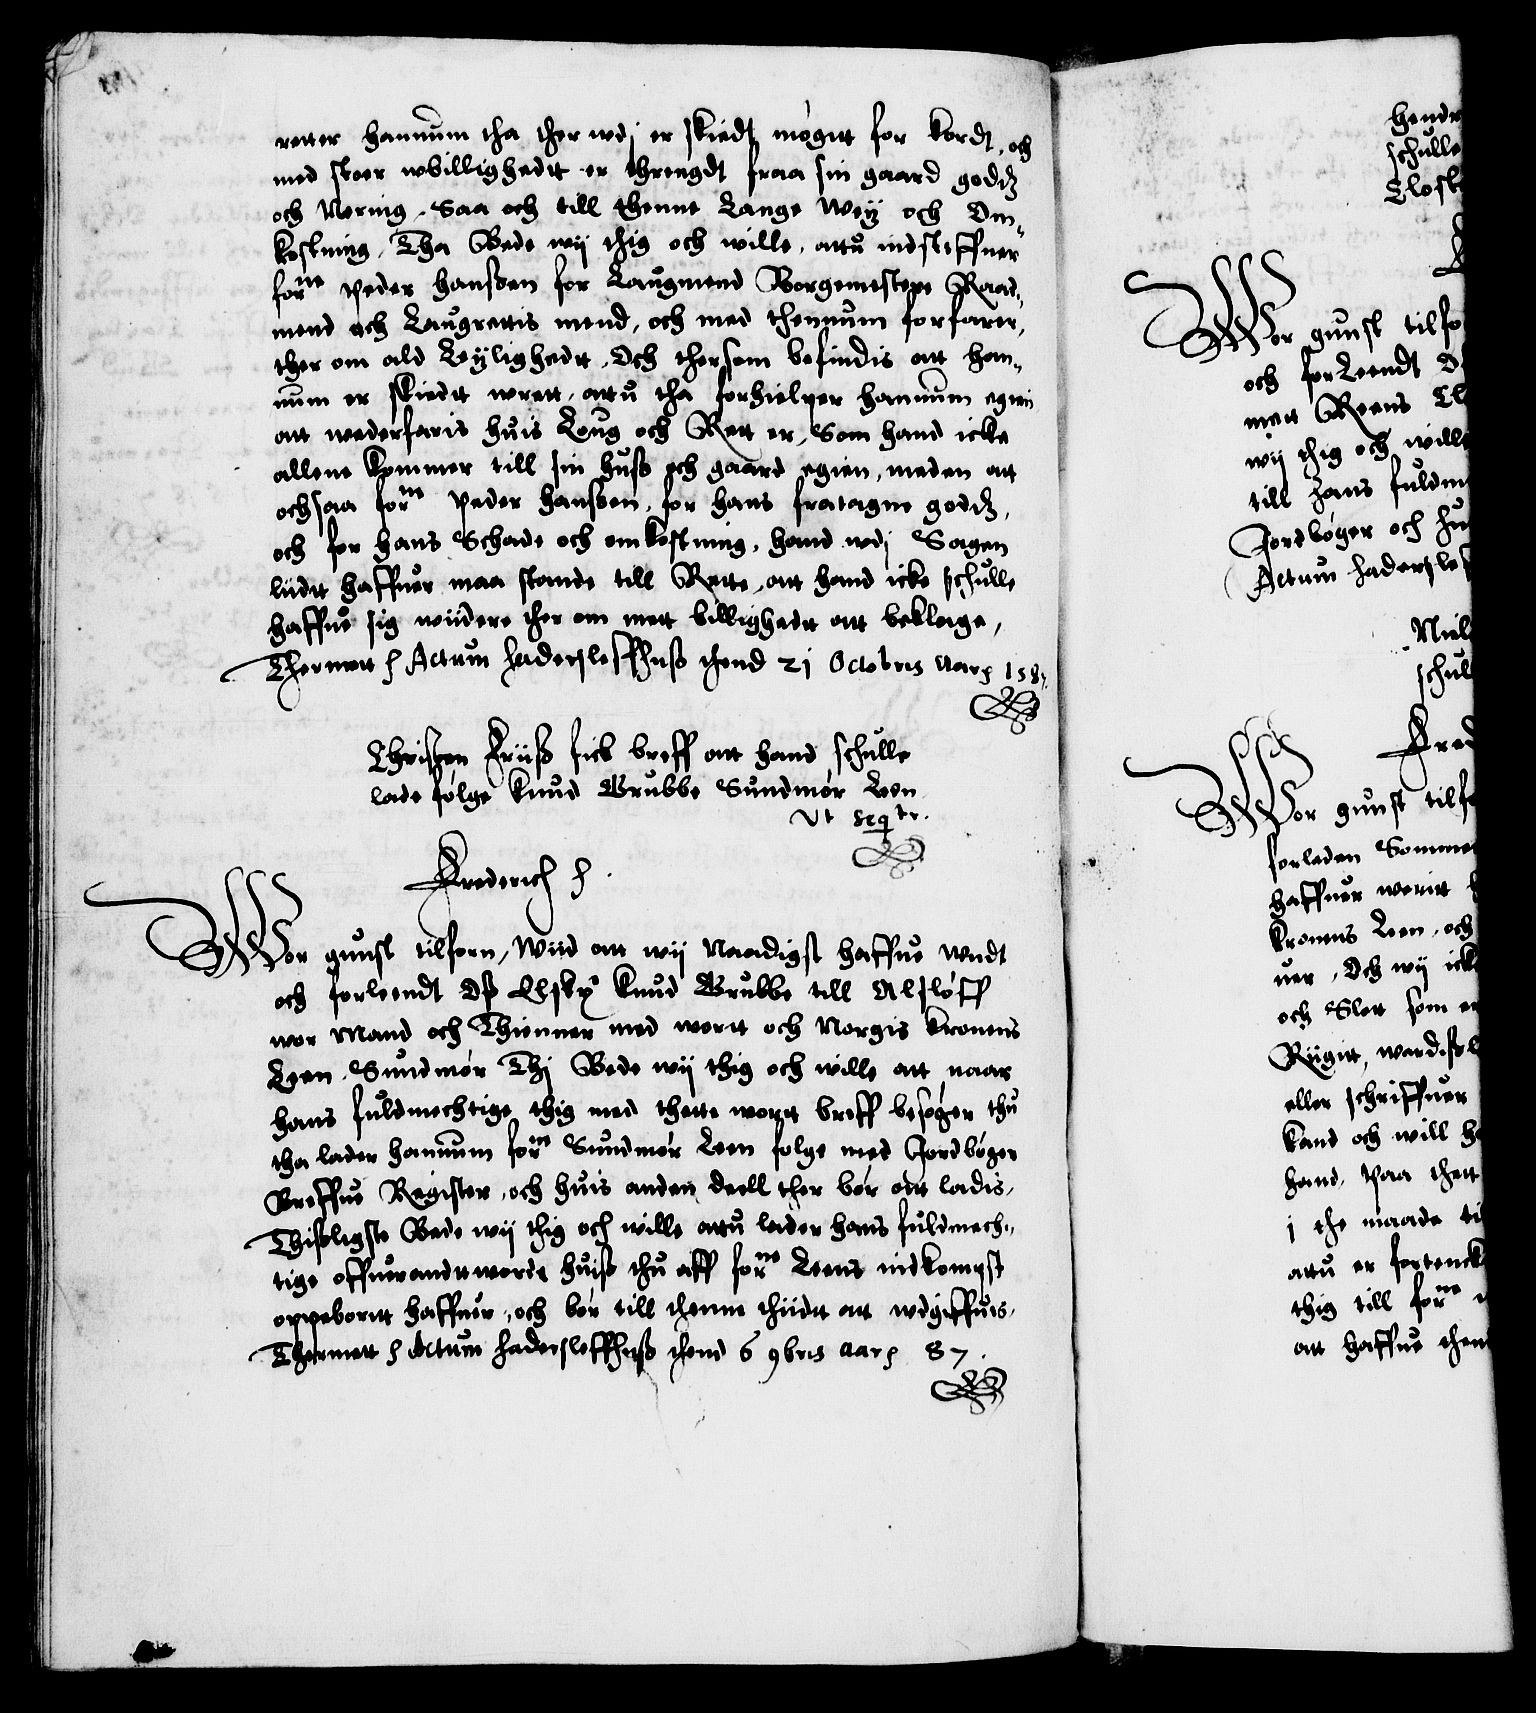 retter hannum tha ther wdj er skiedt møgitt for kordt, och
med stoer wbillighedtt er threngdt fraa sin gaard godtz
och Nering, Saa och till thenne Lange Weij och Om„
kostning, Tha Bede wij thig och wille, attu indsteffner
forne Peder Hanßen for Laugmend Borgemestere Raad„
mend och Laugrettis mend, och med thennum forfarer,
ther om ald Leijlighedtt, Och thersom befindis att han„
num er skiedtt wrett, attu tha forhielper hannum egien
att wederfaris huis Loug och Rett er, Som hand icke
allene kommer till sin huß och gaard egien, meden att
ochsaa forne Peder Hanßen, for hans fratagne godtz,
och for hans Schade och omkostning, hand wdj Sagen
liidtt haffuer maa stande till Rette, att hand icke schulle
haffue sig wiidere ther om mett billighedtt att beklage,
Thermett ꝛ Actum Haderßleffhuß thend 21 Octobris Aarꝭ 1587.
Christen Friiß fick breff att hand schulle
lade følge Knud Grubbe Sundmør Leen
Vt seqtr.
Frederich ꝛ.
Wor gunst tilforn, Wiid att wij Naadigst haffue wndt
och forleendt Oß Elskꝭ Knud Grubbe till Alsløff
wor Mand och Thienner med wortt och Norgis kronens
Leen Sundmør Thj Bede wij thig och wille att naar
hans fuldmechtige thig med thette wortt breff besøger thu
tha lader hannum forne Sundmør Leen følge med Jordbøger
Breffue Register, och huis anden deell ther bør att ladis,
Thisligste Bede wij thig och wille attu lader hans fuldmech„
tige offuerandtworde huiß thu aff forne Leens indkompst
oppebortt haffuer, och bør till thenne thiidtt att wdgiffuis,
Thermett ꝛ Actum Haderßleffhuß thend 6 9bris Aarꝭ 87.
Hendr
schulle
Closte
Wor gunst tilfo
och forleendt
mett Reens Cl
wij thig och wille
till hans fuldm
Jordbøger och hu
Actum Haderßlef
Niel
schul
Fred
Wor gunst tilfo
forleden Sommer
haffuer weritt
kronens Leen, och
uer, Och wij icke
och Slett som er
Riigitt,
eller schriffuer
kand och will
hand, paa thett
j the maade ti
attu er fortenckt
thig till forne
att haffue then